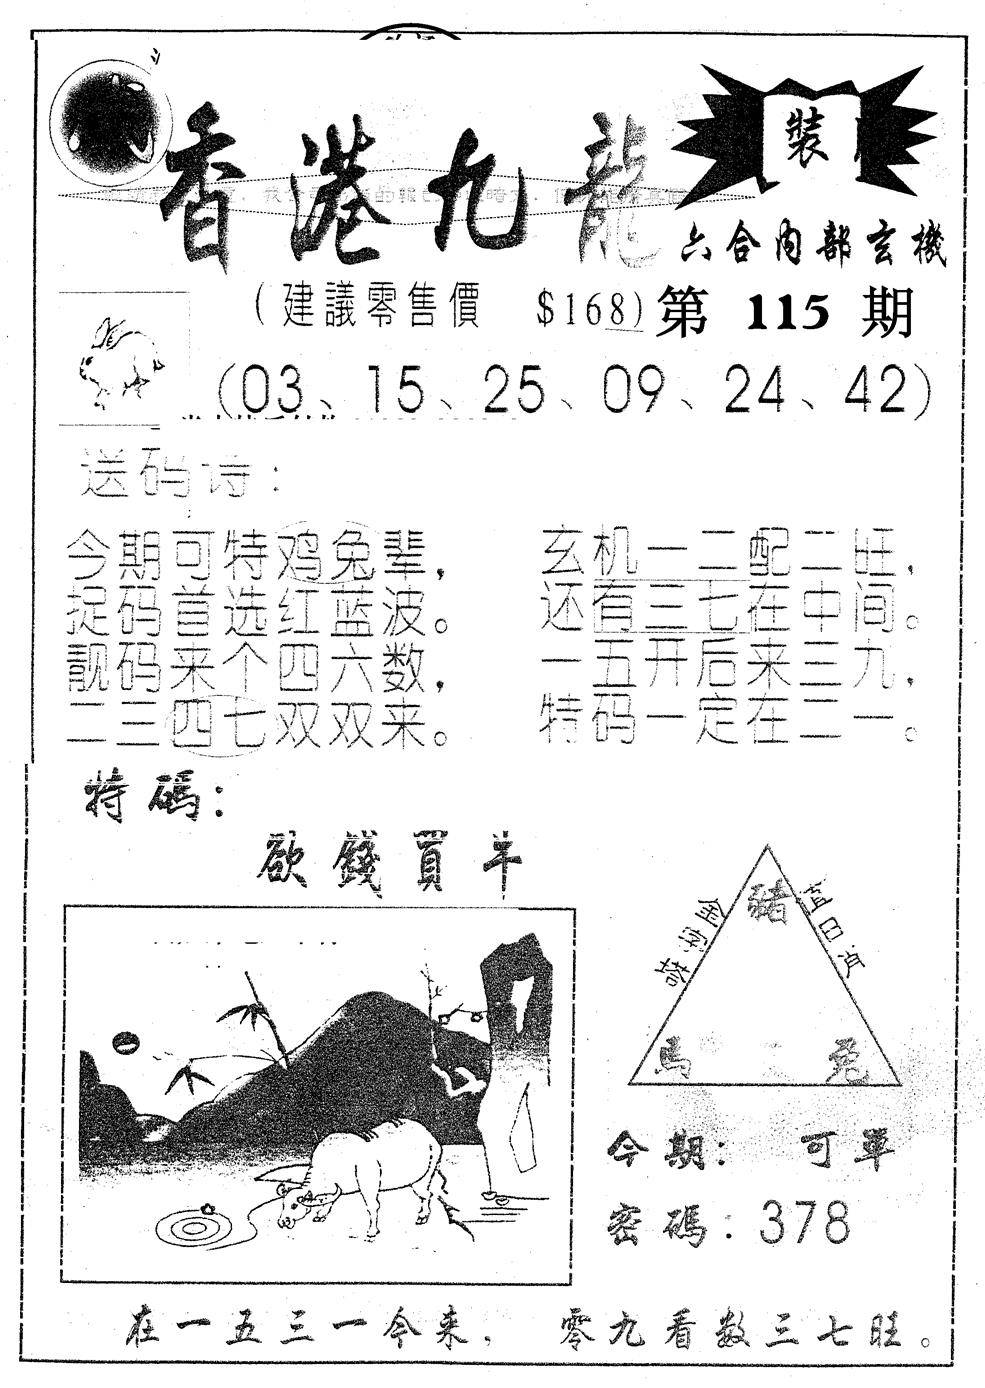 香港九龍
裝
六合内部玄機
(建議零售價 $168)
第 115 期
(03、15、25、09、24、42)
送码诗:
今期可特鸡兔辈,
捉码首选红蓝波。
靓码来个四六数,
二三四七双双来。
玄机一二配二旺,
还有三七在中间。
一五开后来三九,
特码一定在二一。
特碼:
欲錢買羊
金字塔
豬
馬
兔
今期: 可單
密碼: 378
在一五三一今来, 零九看数三七旺。